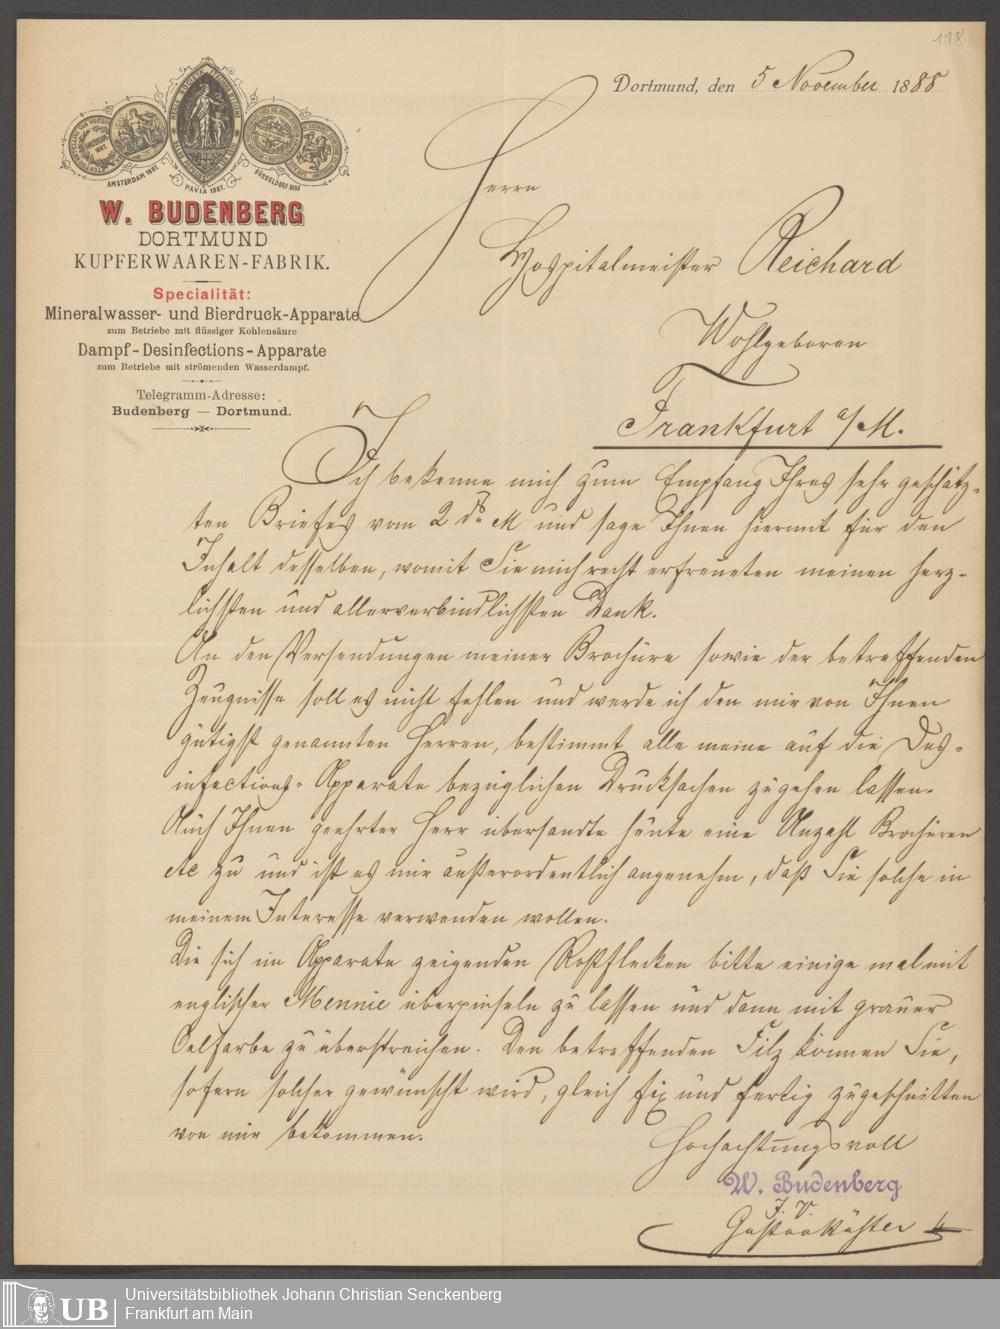 118
Dortmund, den 5 November 1888
AMSTERDAM 1887.
PAVIA 1887.
DÜSSELDORF 1887
W. BUDENBERG
DORTMUND
KUPFERWAAREN-FABRIK.
Specialität:
Mineralwasser- und Bierdruck-Apparate
zum Betriebe mit flüssiger Kohlensäure
Dampf-Desinfections-Apparate
zum Betriebe mit strömenden Wasserdampf.
Telegramm-Adresse:
Budenberg — Dortmund.
Herrn
Hospitalmeister Reichard
Wohlgeboren
Frankfurt a/M.
Ich bekenne mich zum Empfang Ihres sehr geschätz-
ten Briefes vom 2 ds. M und sage Ihnen hiermit für den
Inhalt desselben, womit Sie mich recht erfreueten meinen herz-
lichsten und allerverbindlichsten Dank.
An den Versendungen meiner Brochüre sowie der betreffenden
Zeugnisse soll es nicht fehlen und werde ich den mir von Ihnen
gütigst genannten Herren, bestimmt alle meine auf die Des-
infections-Apparate bezüglichen Drucksachen zugehen lassen.
Auch Ihnen geehrter Herr übersandte heute eine Anzahl Brochüren
etc zu und ist es mir außerordentlich angenehm, daß Sie solche in
meinem Interesse verwenden wollen.
Die sich im Apparate zeigenden Rostflecken bitte einige mal mit
englischer Mennie überpinseln zu lassen und dann mit grauer
Oelfarbe zu überstreichen. Den betreffenden Filz können Sie,
sofern solcher gewünscht wird, gleich fix und fertig zugeschnitten
von mir bekommen.
Hochachtungsvoll
W. Budenberg
J. V.
Gustav Köster
UB
Universitätsbibliothek Johann Christian Senckenberg
Frankfurt am Main